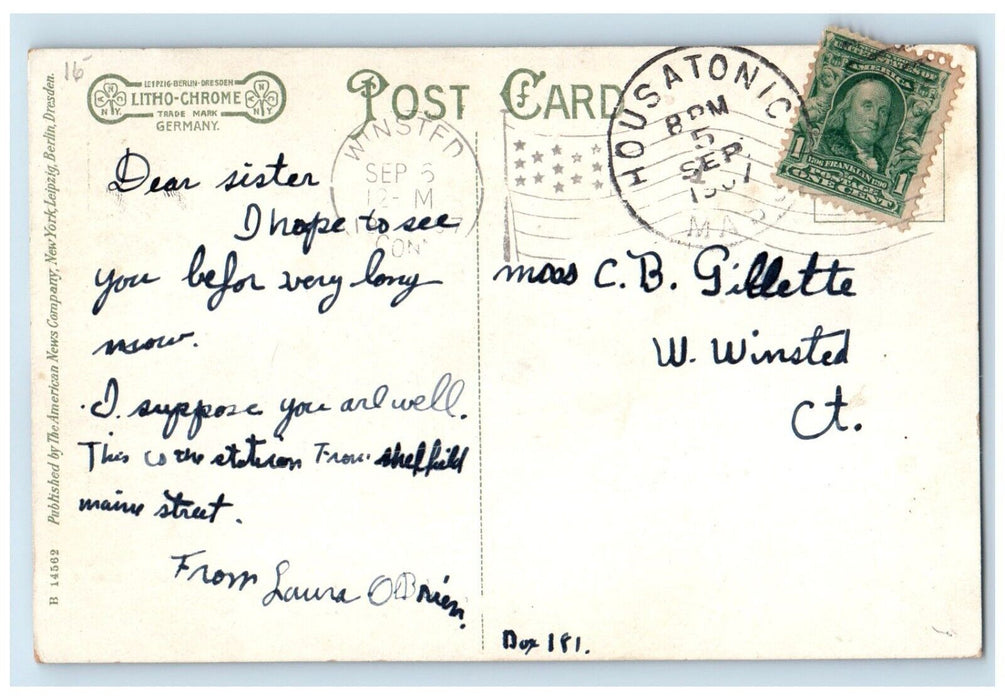 16
LEIPZIG-BERLIN-DRESDEN
LITHO-CHROME
TRADE MARK
GERMANY.
N N
N.Y. N.Y.
POST CARD
WINSTED
SEP 6
12- M
CONN
HOUSATONIC
8 PM
5
SEP
1907
MASS
POSTAGE
ONE CENT
1 1
UNITED STATES OF
AMERICA
1706 FRANKLIN 1790
Dear sister
I hope to see
you befor very long
now.
I suppose you are well.
This is the station From sheffield
maine street.
From Laura OBrien.
miss C. B. Gillette
W. Winsted
Ct.
Box 181.
B 14562 Published by The American News Company, New York, Leipzig, Berlin, Dresden.